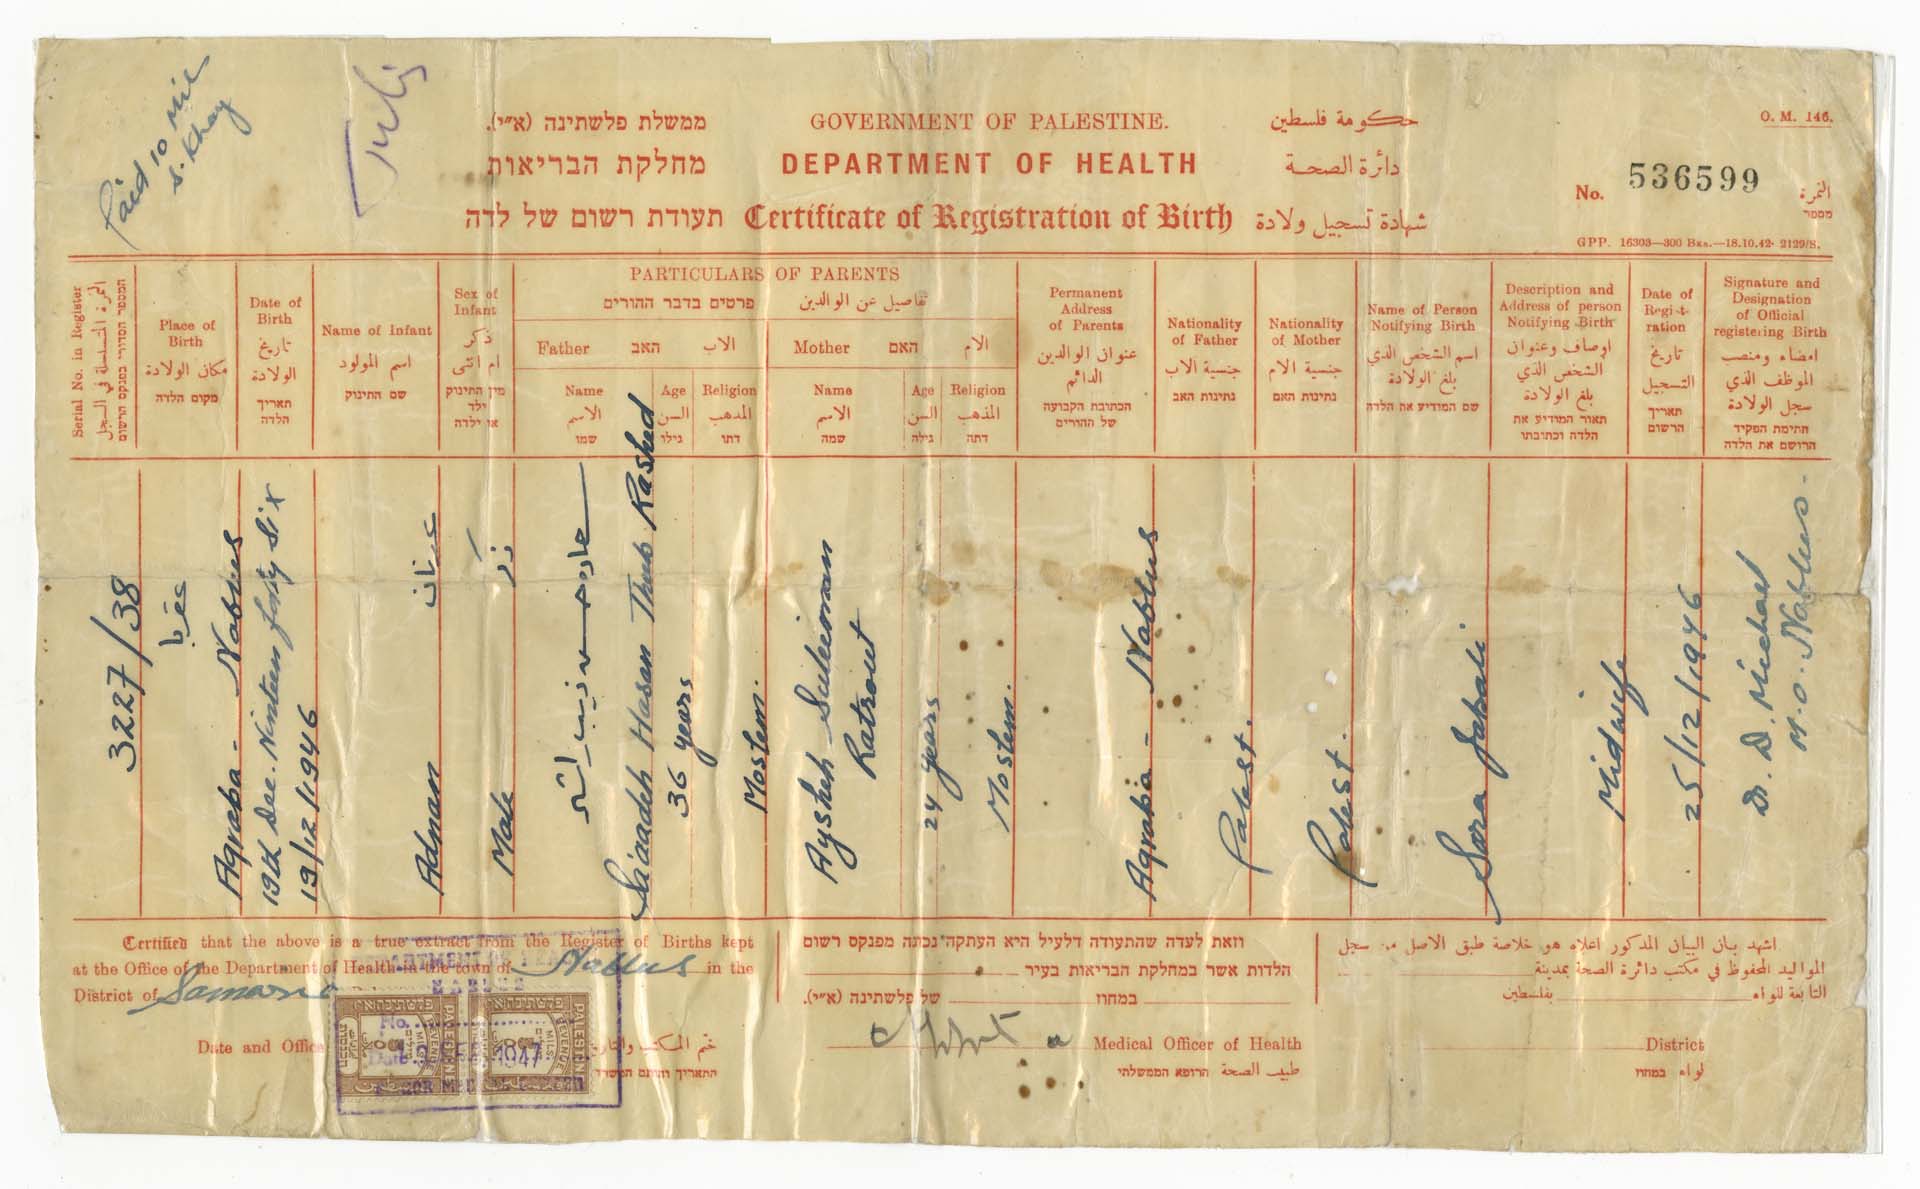 Paid 10 mil
S. Khay
ממשלת פלשתינה (א״י). GOVERNMENT OF PALESTINE. حكومة فلسطين
O. M. 146.
מחלקת הבריאות DEPARTMENT OF HEALTH دائرة الصحة
No. 536599 النمرة
מספר
תעודת רשום של לדה Certificate of Registration of Birth شهادة تسجيل ولادة
GPP. 16303—300 Bxs.—18.10.42- 2129/S.
Serial No. in Register
النمرة المتسلسلة في السجل
המספר הסדורי בפנקס הרשום
Place of
Birth
مكان الولادة
מקום הלדה
Date of
Birth
تاريخ
الولادة
תאריך
הלדה
Name of Infant
اسم المولود
שם התינוק
Sex of
Infant
ذكر
ام انثى
מין התינוק
ילד
או ילדה
PARTICULARS OF PARENTS
פרטים בדבר ההורים تفاصيل عن الوالدين
Father האב الاب
Name
الاسم
שמו
Age
السن
גילו
Religion
المذهب
דתו
Mother האם الام
Name
الاسم
שמה
Age
السن
גילה
Religion
المذهب
דתה
Permanent
Address
of Parents
عنوان الوالدين
الدائم
הכתובת הקבועה
של ההורים
Nationality
of Father
جنسية الاب
נתינות האב
Nationality
of Mother
جنسية الام
נתינות האם
Name of Person
Notifying Birth
اسم الشخص الذي
بلغ الولادة
שם המודיע את הלדה
Description and
Address of person
Notifying Birth
اوصاف وعنوان
الشخص الذي
بلغ الولادة
תאור המודיע את
הלדה וכתובתו
Date of
Regist-
ration
تاريخ
التسجيل
תאריך
הרשום
Signature and
Designation
of Official
registering Birth
امضاء ومنصب
الموظف الذي
سجل الولادة
חתימת הפקיד
הרושם את הלדה
3227/38
عقربا
Aqraba - Nablus
19th Dec. Ninteen forty six
19/12/1946
Adnan عدنان
Male ذكر
Siaadeh Hasan Thub Rashed
36 years
Moslem.
Aysheh Suleiman
Ratrout
24 years
Moslem.
Aqraba - Nablus
Palest.
Palest.
Sara Jabali
Midwife
25/12/1946
Dr. D. Michael
M.O. Nablus.
Certified that the above is a true extract from the Register of Births kept
at the Office of the Department of Health in the town of Nablus in the
District of Samaria
Date and Office
ختم المكتب والتاريخ
התאריך וחותם המשרד
DEPARTMENT OF HEALTH
NABLUS
No.
Date 1947
PALESTINE
REVENUE
MILS
PALESTINE
REVENUE
MILS
וזאת לעדה שהתעודה דלעיל היא העתקה נכונה מפנקס רשום
הלדות אשר במחלקת הבריאות בעיר
במחוז של פלשתינה (א״י).
Medical Officer of Health
طبيب الصحة הרופא הממשלתי
اشهد بان البيان المذكور اعلاه هو خلاصة طبق الاصل من سجل
المواليد المحفوظ في مكتب دائرة الصحة بمدينة
التابعة للواء بفلسطين
District
لواء במחוז